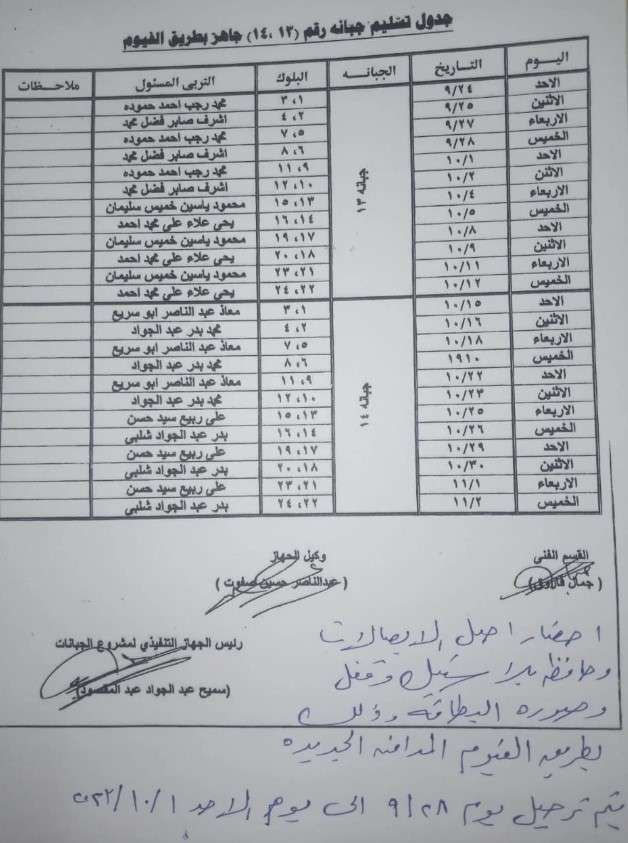 جدول تسليم جبانه رقم (١٣، ١٤) جاهز بطريق الفيوم
اليوم التاريخ الجبانه البلوك التربى المسئول ملاحظات
الاحد ٩/٢٤ جبانه ١٣ ١، ٣ محمد رجب احمد حموده
الاثنين ٩/٢٥ ٢، ٤ اشرف صابر فضل محمد
الاربعاء ٩/٢٧ ٥، ٧ محمد رجب احمد حموده
الخميس ٩/٢٨ ٦، ٨ اشرف صابر فضل محمد
الاحد ١٠/١ ٩، ١١ محمد رجب احمد حموده
الاثنن ١٠/٢ ١٠، ١٢ اشرف صابر فضل محمد
الاربعاء ١٠/٤ ١٣، ١٥ محمود ياسين خميس سليمان
الخميس ١٠/٥ ١٤، ١٦ يحى علاء على محمد احمد
الاحد ١٠/٨ ١٧، ١٩ محمود ياسين خميس سليمان
الاثنين ١٠/٩ ١٨، ٢٠ يحى علاء على محمد احمد
الاربعاء ١٠/١١ ٢١، ٢٣ محمود ياسين خميس سليمان
الخميس ١٠/١٢ ٢٢، ٢٤ يحى علاء على محمد احمد
الاحد ١٠/١٥ جبانه ١٤ ١، ٣ معاذ عبد الناصر ابو سريع
الاثنين ١٠/١٦ ٢، ٤ محمد بدر عبد الجواد
الاربعاء ١٠/١٨ ٥، ٧ معاذ عبد الناصر ابو سريع
الخميس ١٩١٠ ٦، ٨ محمد بدر عبد الجواد
الاحد ١٠/٢٢ ٩، ١١ معاذ عبد الناصر ابو سريع
الاثنين ١٠/٢٣ ١٠، ١٢ محمد بدر عبد الجواد
الاربعاء ١٠/٢٥ ١٣، ١٥ على ربيع سيد حسن
الخميس ١٠/٢٦ ١٤، ١٦ بدر عبد الجواد شلبى
الاحد ١٠/٢٩ ١٧، ١٩ على ربيع سيد حسن
الاثنين ١٠/٣٠ ١٨، ٢٠ بدر عبد الجواد شلبى
الاربعاء ١١/١ ٢١، ٢٣ على ربيع سيد حسن
الخميس ١١/٢ ٢٢، ٢٤ بدر عبد الجواد شلبى
القسم الفنى وكيل الجهاز
(جمال فاروق) (عبدالناصر حسين صفوت)
رئيس الجهاز التنفيذي لمشروع الجبانات
(سميح عبد الجواد عبد المقصود)
احضار اصل الايصالات
وحافظه بلاستيك وقفل
وصوره البطاقه وذلك
بطريق الفيوم المدافن الجديده
يتم ترحيل يوم ٩/٢٨ الى يوم الاحد ١٠/١